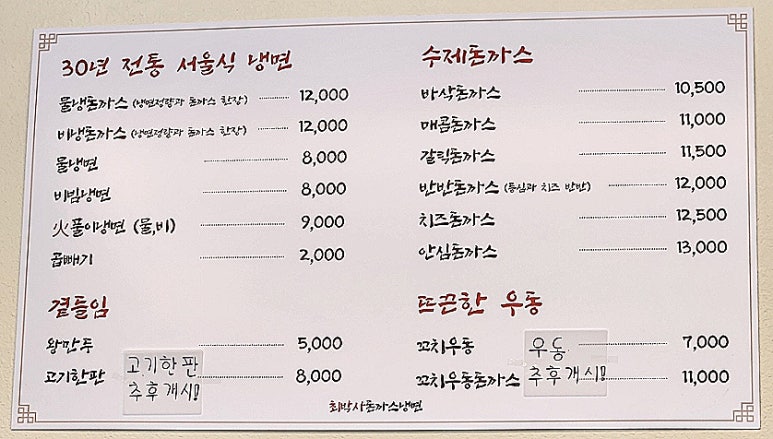 30년 전통 서울식 냉면
물냉돈까스 (냉면정량과 돈까스 한장) 12,000
비냉돈까스 (냉면정량과 돈까스 한장) 12,000
물냉면 8,000
비빔냉면 8,000
火풀이냉면 (물,비) 9,000
곱빼기 2,000
곁들임
왕만두 5,000
고기한판 8,000
고기한판
추후개시!
수제돈까스
바삭돈까스 10,500
매콤돈까스 11,000
갈릭돈까스 11,500
반반돈까스 (등심과 치즈 반반) 12,000
치즈돈까스 12,500
안심돈까스 13,000
뜨끈한 우동
꼬치우동 7,000
꼬치우동돈까스 11,000
우동
추후개시!
최박사돈까스냉면